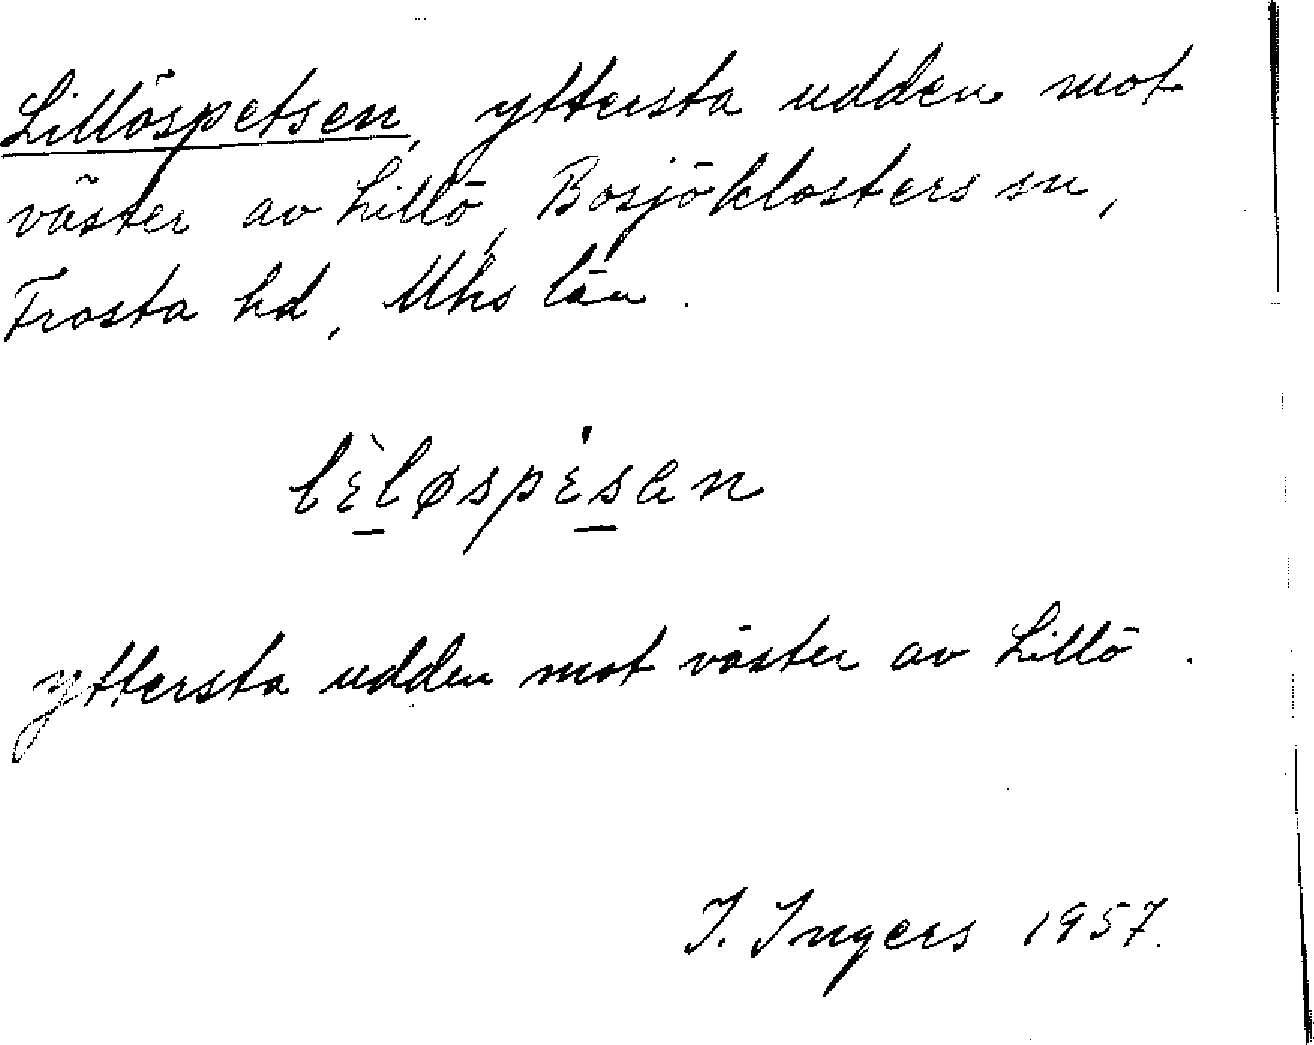 Lillöspetsen, yttersta udden mot
väster av Lillö, Bosjöklosters sn,
Frosta hd, Mhs län.
yttersta udden mot väster av Lillö.
I. Ingers 1957.